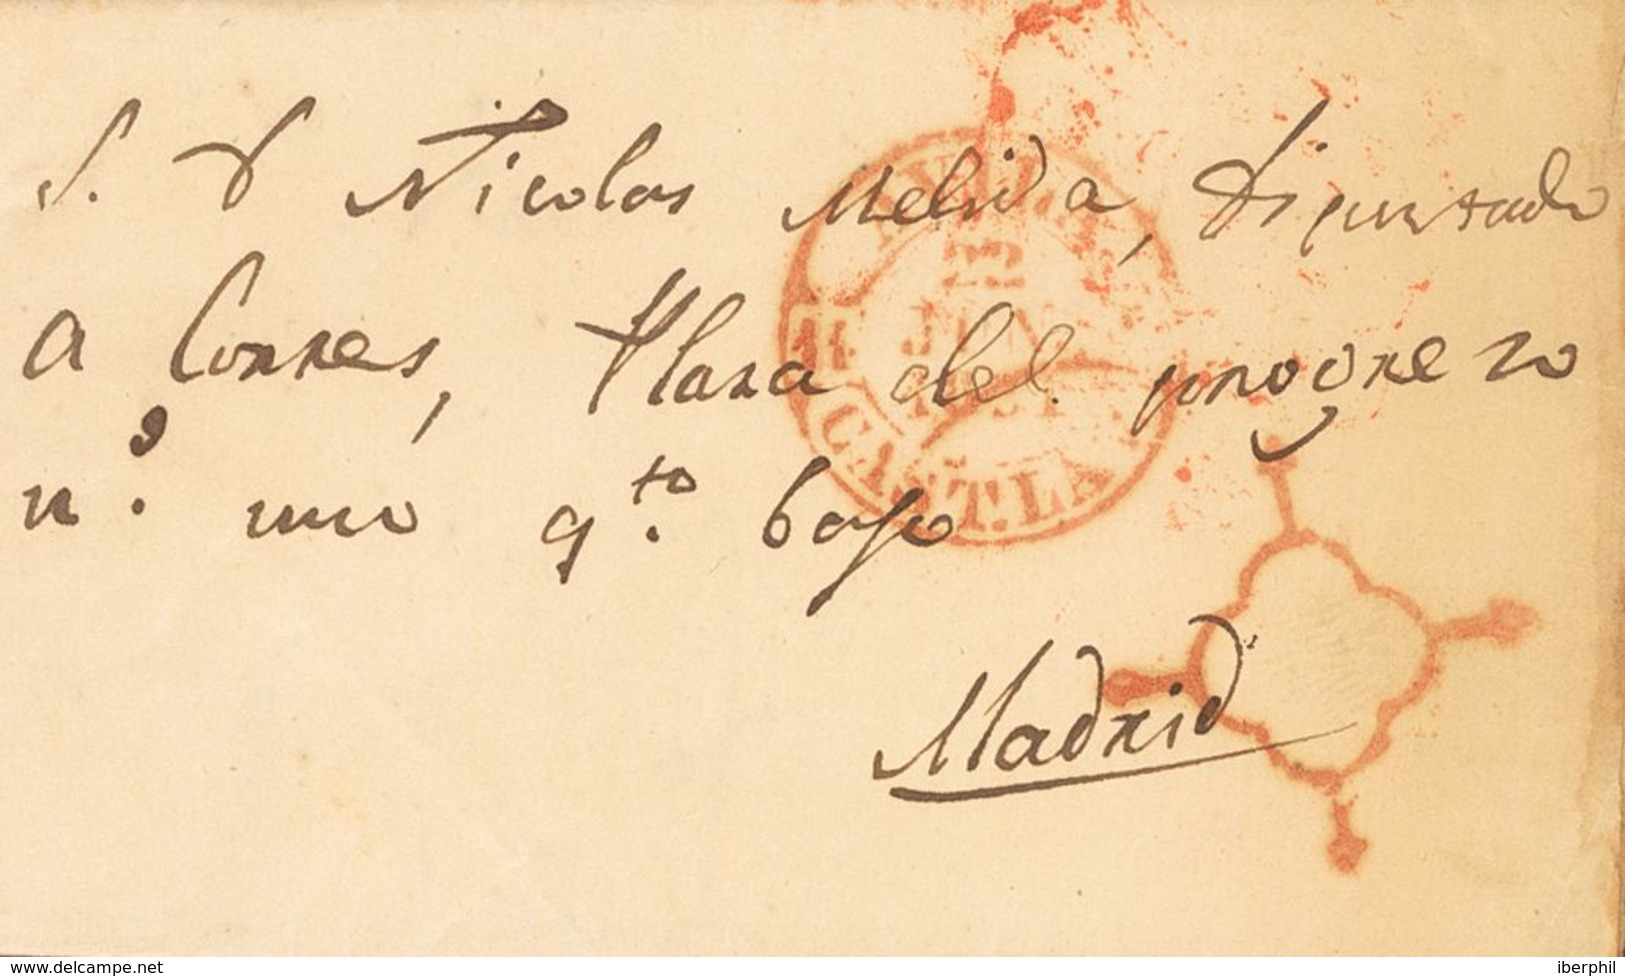 S. D Nicolas Melida, diputado
a Cortes, Plaza del progreso
n.º uno q.to bajo
Madrid
AVILA
22
JUN
1851
CAST.LA
www.delcampe.net
iberphil